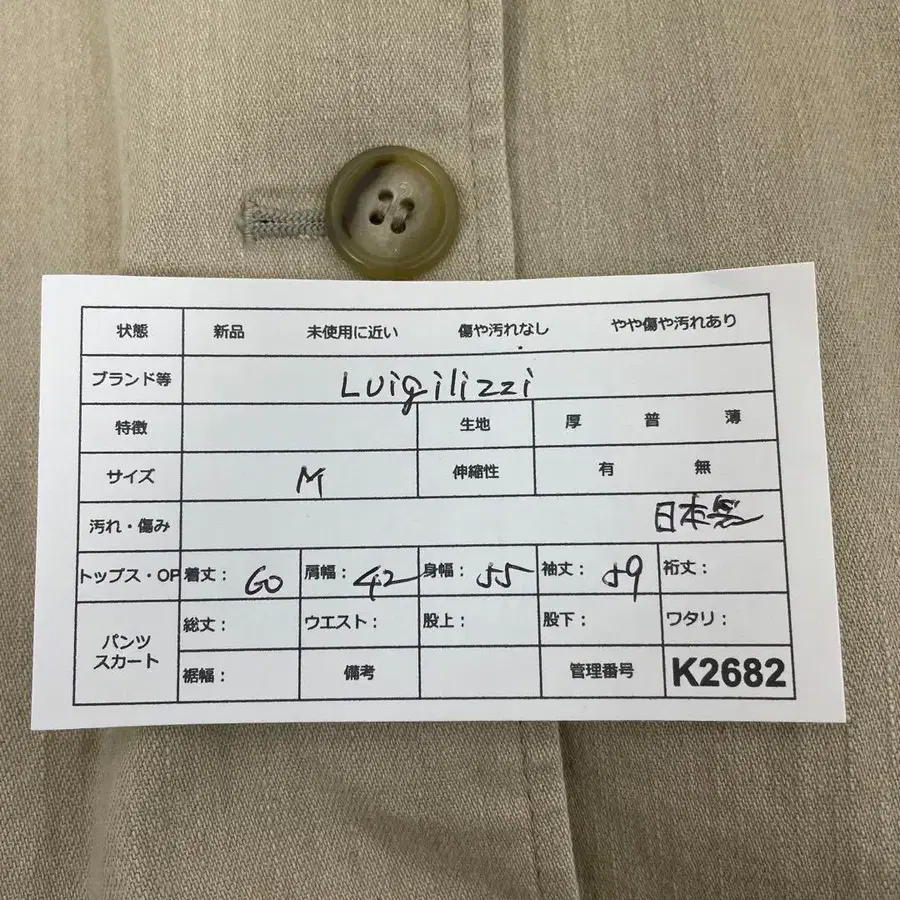 状態 新品 未使用に近い 傷や汚れなし やや傷や汚れあり
ブランド等 Luigilizzi
特徴 生地 厚 普 薄
サイズ M 伸縮性 有 無
汚れ・傷み 日本製
トップス・OP 着丈： 60 肩幅： 42 身幅： 55 袖丈： 59 裄丈：
パンツ
スカート
総丈： ウエスト： 股上： 股下： ワタリ：
裾幅： 備考 管理番号 K2682